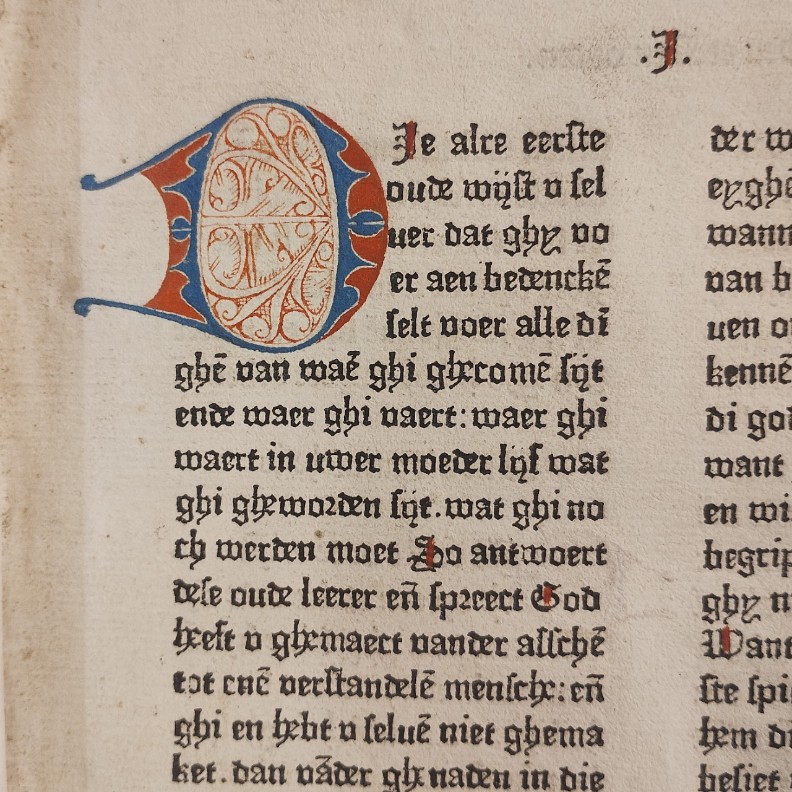 .I.
DIe alre eerste
oude wijst v sel
uer dat ghy vo
er aen bedenckē
selt voer alle dī
ghē van waē ghi ghecomē sijt
ende waer ghi vaert: waer ghi
waert in uwer moeder lijf wat
ghi gheworden sijt. wat ghi no
ch werden moet So antwoert
dese oude leerer eñ spreect God
heeft v ghemaect vander asschē
tot enē verstandelē mensche: eñ
ghi en hebt v seluē niet ghema
ket. dan vāder ghenaden in die
der w
eyghē
wann
van b
uen o
kennē
di god
want
en wi
begrip
ghy n
Want
ste spi
hem di
besiet